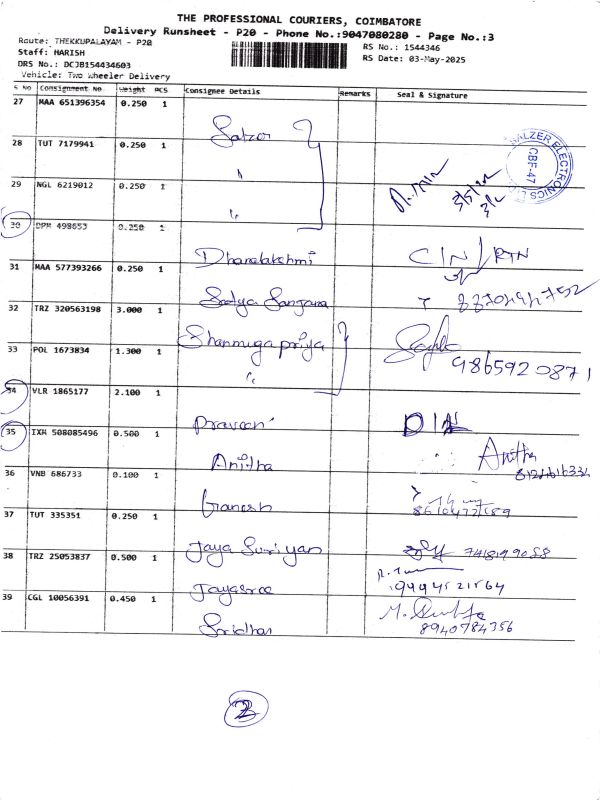 THE PROFESSIONAL COURIERS, COIMBATORE
Delivery Runsheet - P20 - Phone No.:9047080280 - Page No.:3
Route: THEKKUPALAYAM - P20
Staff: HARISH
DRS No.: DCJB154434603
Vehicle: Two Wheeler Delivery
RS No.: 1544346
RS Date: 03-May-2025
S No Consignment No Weight PCS Consignee Details Remarks Seal & Signature
27 MAA 651396354 0.250 1
Salzer
28 TUT 7179941 0.250 1
"
29 NGL 6219012 0.250 1
"
SALZER ELECTRONICS
CBE-47
30 DPM 498653 0.250 1
Dhanalakshmi
CIN/RTN
31 MAA 577393266 0.250 1
Sathya Sanjana
32 TRZ 320563198 3.000 1
Shanmuga priya
33 POL 1673834 1.300 1
"
9865920871
34 VLR 1865177 2.100 1
Praveen
35 IXM 508085496 0.500 1
Anitha
Anitha
36 VNB 686733 0.100 1
Ganesh
37 TUT 335351 0.250 1
Jaya Suriyan
38 TRZ 25053837 0.500 1
Jayasree
9444521564
39 CGL 10056391 0.450 1
Sridhar
8940784356
2